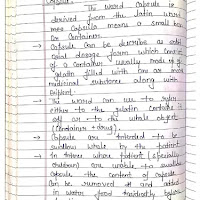 The word capsule is
derived from the latin word
means a small box
or Container.
→ Capsule can be describe as solid
oral dosage forms which consist
of a container usually made of
gelatin filled with one or more
medicinal substance along with
Excipient.
→ The word can use to refer
either to the gelatin container
or to the whole object
(Container + drug).
→ Capsule are intended to be
swallow whole by the patient.
→ In infaces where patient (especially
Children) are unable to swallow
capsule the content of capsule
can be removed and added
in water, food